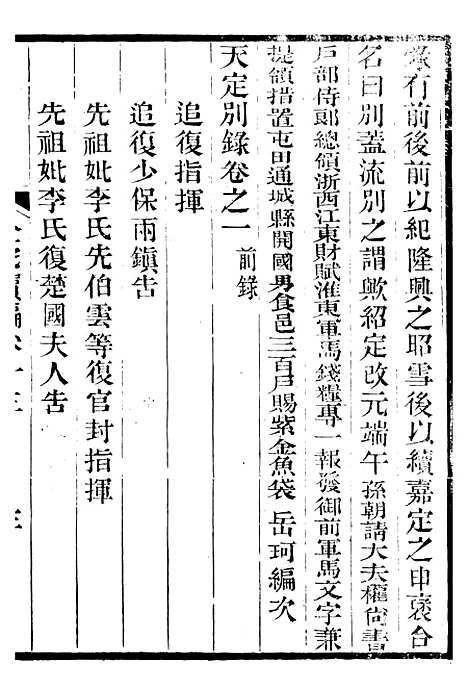 錄有前後前以紀隆興之昭雪後以續嘉定之申褒合
名曰別蓋流別之謂歟紹定改元端午孫朝請大夫權尚書
戶部侍郎總領浙西江東財賦淮東軍馬錢糧專一報發御前軍馬文字兼
提領措置屯田通城縣開國男食邑三百戶賜紫金魚袋岳珂編次
天定別錄卷之一 前錄
追復指揮
追復少保兩鎮告
先祖妣李氏先伯雲等復官封指揮
先祖妣李氏復楚國夫人告
續編卷十三 三